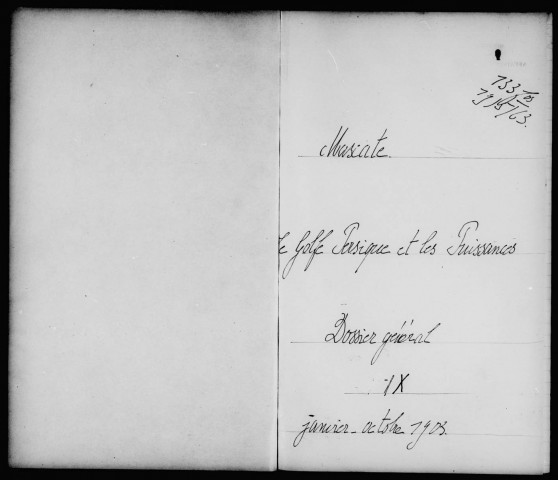 Mascate
Golfe Persique et les Puissances
Dossier général
IX
janvier - octobre 1903.